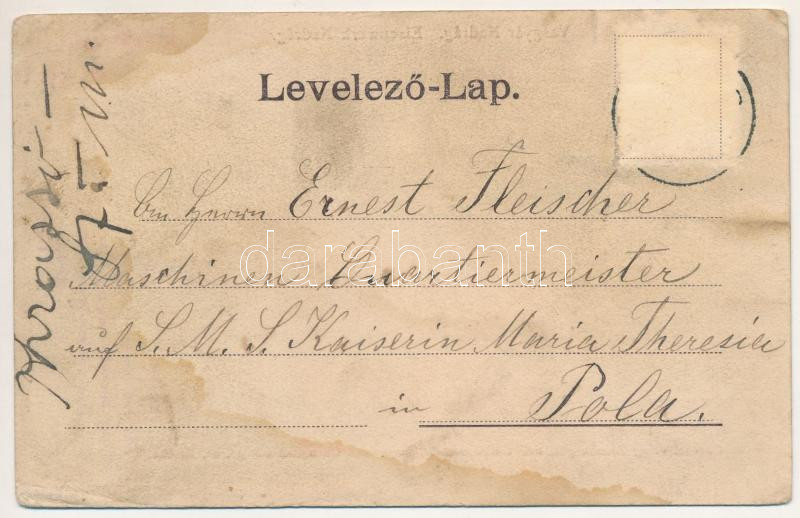 Levelező-Lap.
An Herrn Ernest Fleischer
Maschinen Quartiermeister
auf S. M. S. Kaiserin Maria Theresia
in Pola.
darabanth